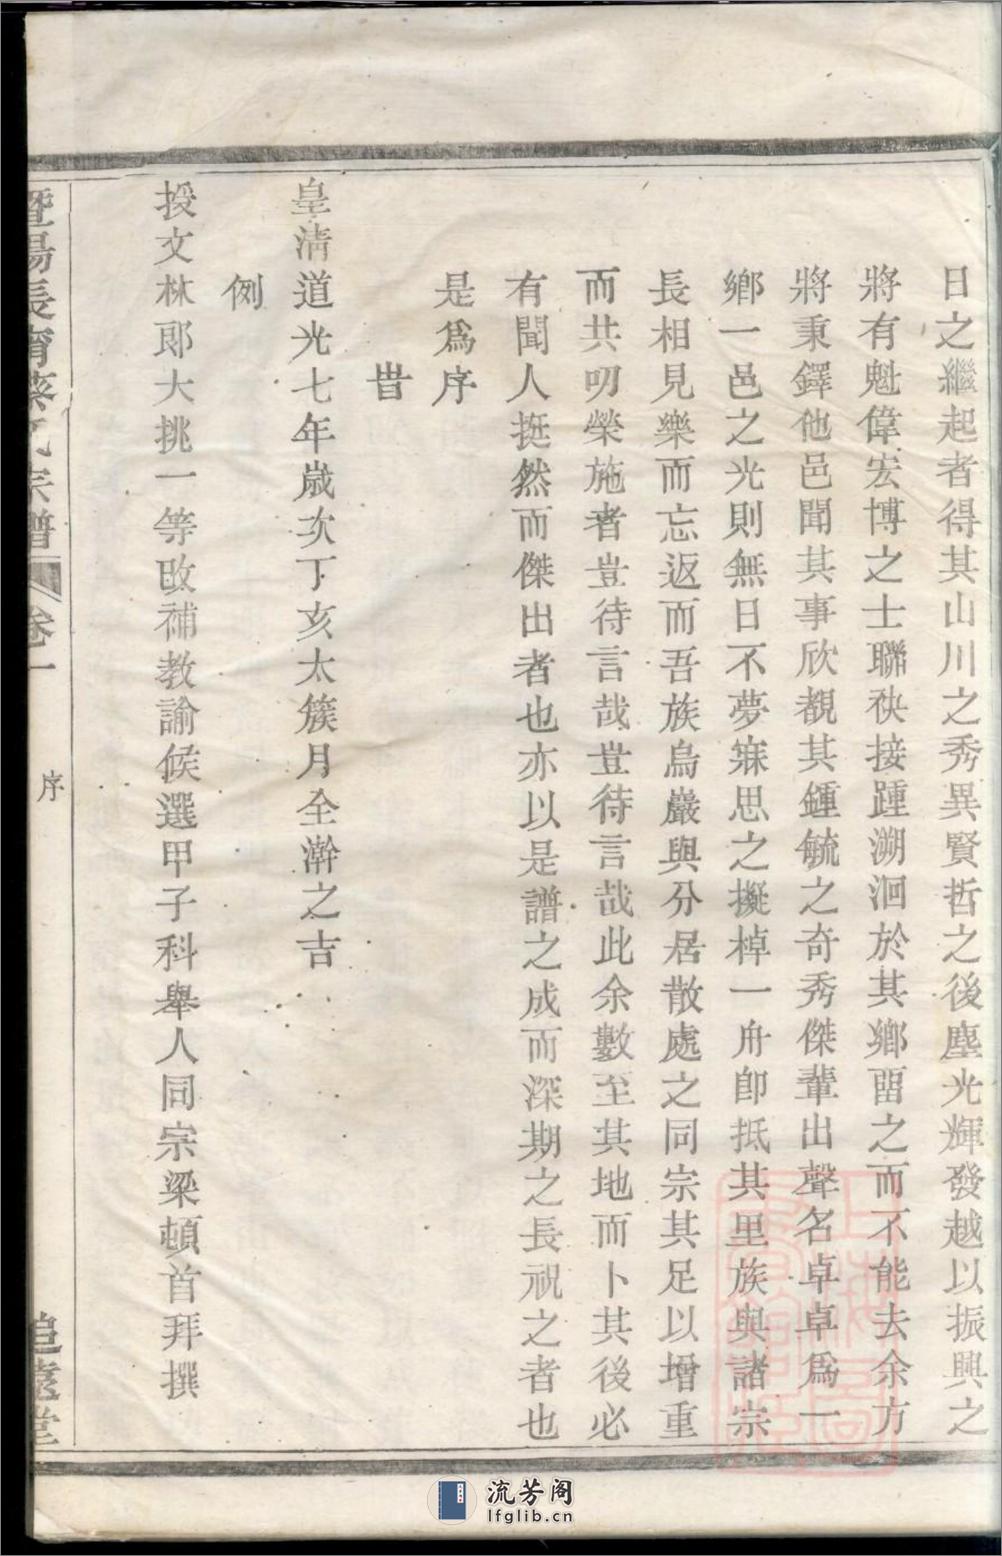 日之繼起者得其山川之秀異賢哲之後塵光輝發越以振興之
將有魁偉宏博之士聯袂接踵溯洄於其鄉畱之而不能去余方
將秉鐸他邑聞其事欣覩其鍾毓之奇秀傑輩出聲名卓卓爲一
鄉一邑之光則無日不夢寐思之擬棹一舟卽抵其里族與諸宗
長相見樂而忘返而吾族烏巖與分居散處之同宗其足以增重
而共叨榮施者豈待言哉豈待言哉此余數至其地而卜其後必
有聞人挺然而傑出者也亦以是譜之成而深期之長祝之者也
是爲序
旹
皇清道光七年歲次丁亥太簇月全澣之吉
例
授文林郎大挑一等改補教諭候選甲子科舉人同宗梁頓首拜撰
暨陽長甯蔡氏宗譜
卷一
序
追遠堂
流芳阁
lfglib.cn